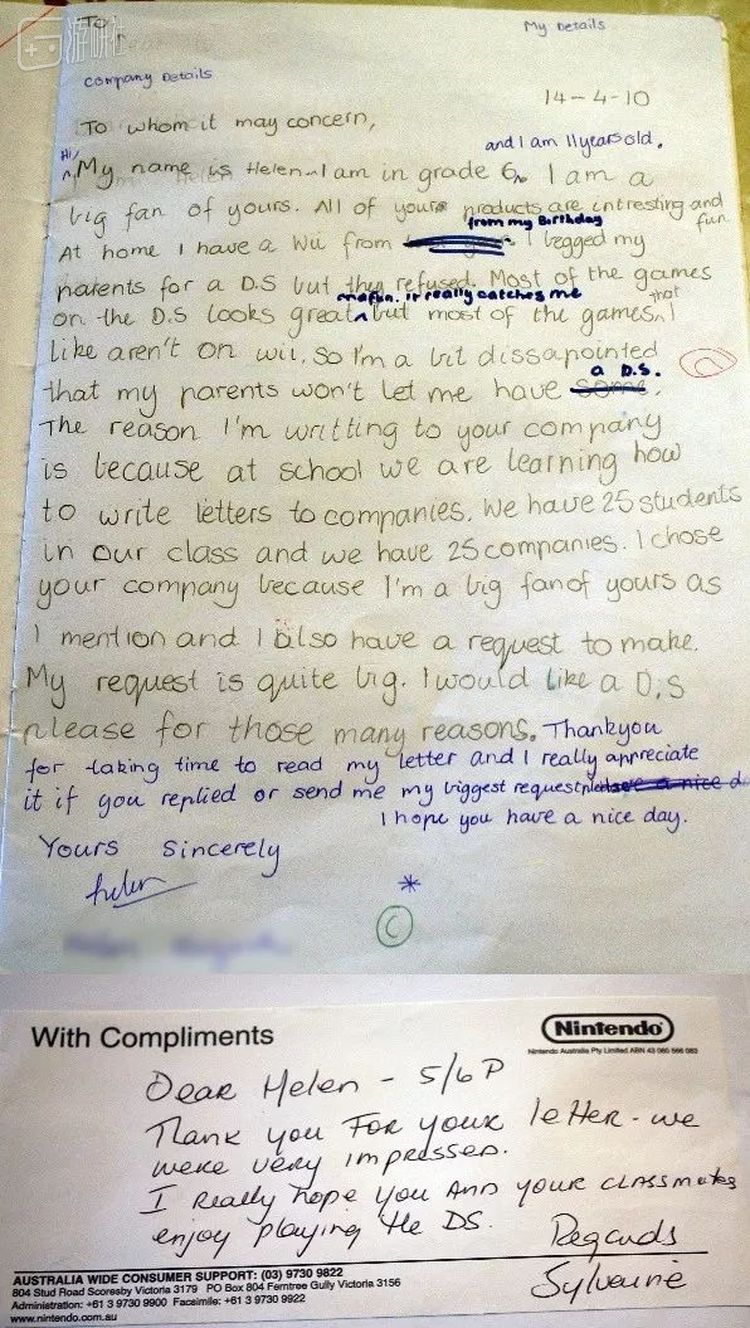 游研社
To
My Details
Company Details
14-4-10
To whom it may concern,
and I am 11 years old.
Hi,
My name is Helen. I am in grade 6. I am a
big fan of yours. All of yours products are intresting and
fun.
from my Birthday
At home I have a Wii from I begged my
parents for a D.S but they refused. Most of the games
it really catches me
that
on the D.S looks great but most of the games I
like aren't on wii. So I'm a bit dissapointed
a D.S.
that my parents won't let me have some.
The reason I'm writting to your company
is because at school we are learning how
to write letters to companies. We have 25 students
in our class and we have 25 companies. I chose
your company because I'm a big fan of yours as
I mention and I also have a request to make.
My request is quite big. I would like a D.S
please for those many reasons. Thankyou
for taking time to read my letter and I really appreciate
it if you replied or send me my biggest request please have a nice d
I hope you have a nice day.
Yours Sincerely
helen
*
C
With Compliments
Nintendo
Nintendo Australia Pty Limited ABN 43 060 566 083
Dear Helen - 5/6P
Thank you for your letter - we
were very impressed.
I really hope you and your classmates
enjoy playing the DS.
Regards
Sylvaine
AUSTRALIA WIDE CONSUMER SUPPORT: (03) 9730 9822
804 Stud Road Scoresby Victoria 3179 PO Box 804 Ferntree Gully Victoria 3156
Administration: +61 3 9730 9900 Facsimile: +61 3 9730 9922
www.nintendo.com.au